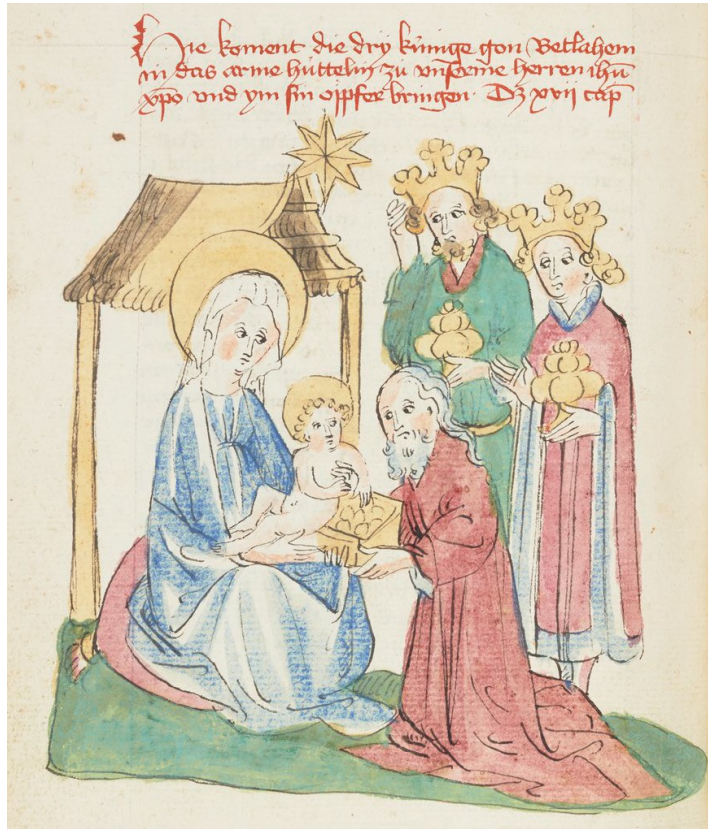 Hie koment die dry künige gon Betlahem
in das arme hüttelin zü vnserme herren ihū
xp̄o vnd ym sin oppfer bringen · Dz xvij cap̄